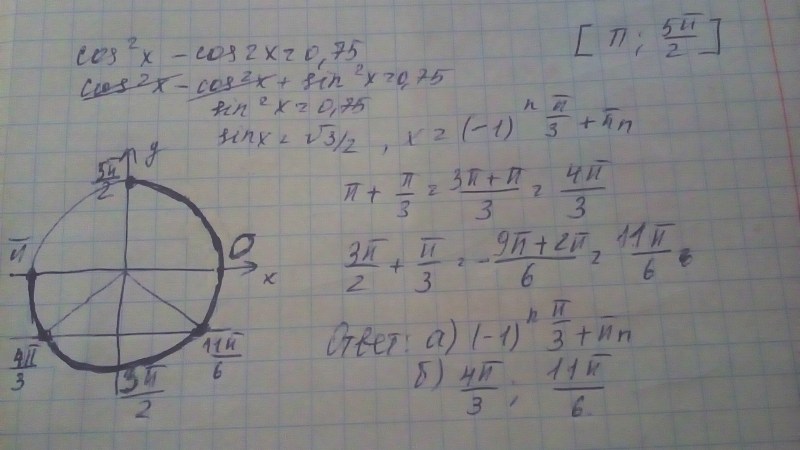 cos²x - cos2x = 0,75
[π; 5π/2]
cos²x - cos²x + sin²x = 0,75
sin²x = 0,75
sinx = √3/2, x = (-1)ⁿ π/3 + πn
π + π/3 = (3π+π)/3 = 4π/3
3π/2 + π/3 = -(9π+2π)/6 = 11π/6
Ответ: а) (-1)ⁿ π/3 + πn
б) 4π/3; 11π/6.
y
5π/2
π
0
x
4π/3
3π/2
11π/6